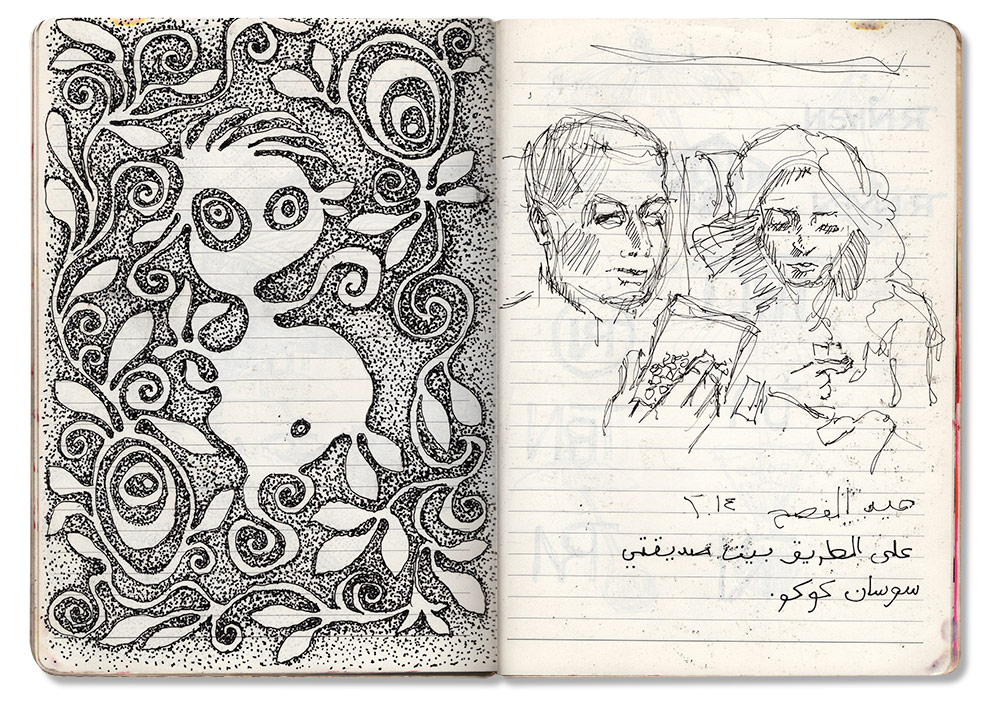 عيد الفصح ٢٠١٤
على الطريق بيت صديقتي
سوسان كوكو.